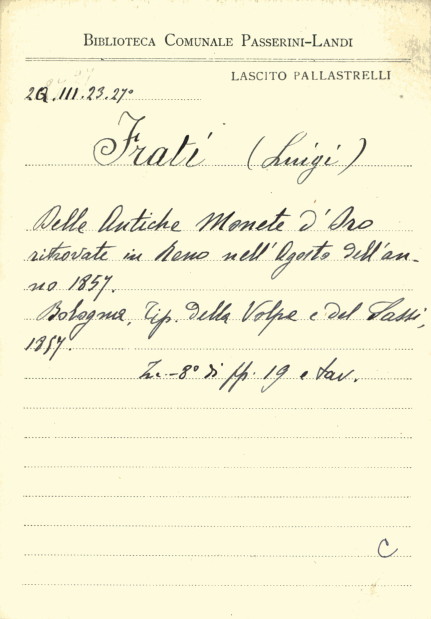 BIBLIOTECA COMUNALE PASSERINI-LANDI
LASCITO PALLASTRELLI
2Q.III.23.27º
Frati (Luigi)
Delle Antiche Monete d'Oro
ritrovate in Reno nell'Agosto dell'an-
no 1857.
Bologna, Tip. della Volpe e del Sassi,
1857.
In-8º di pp. 19 e tav.
C